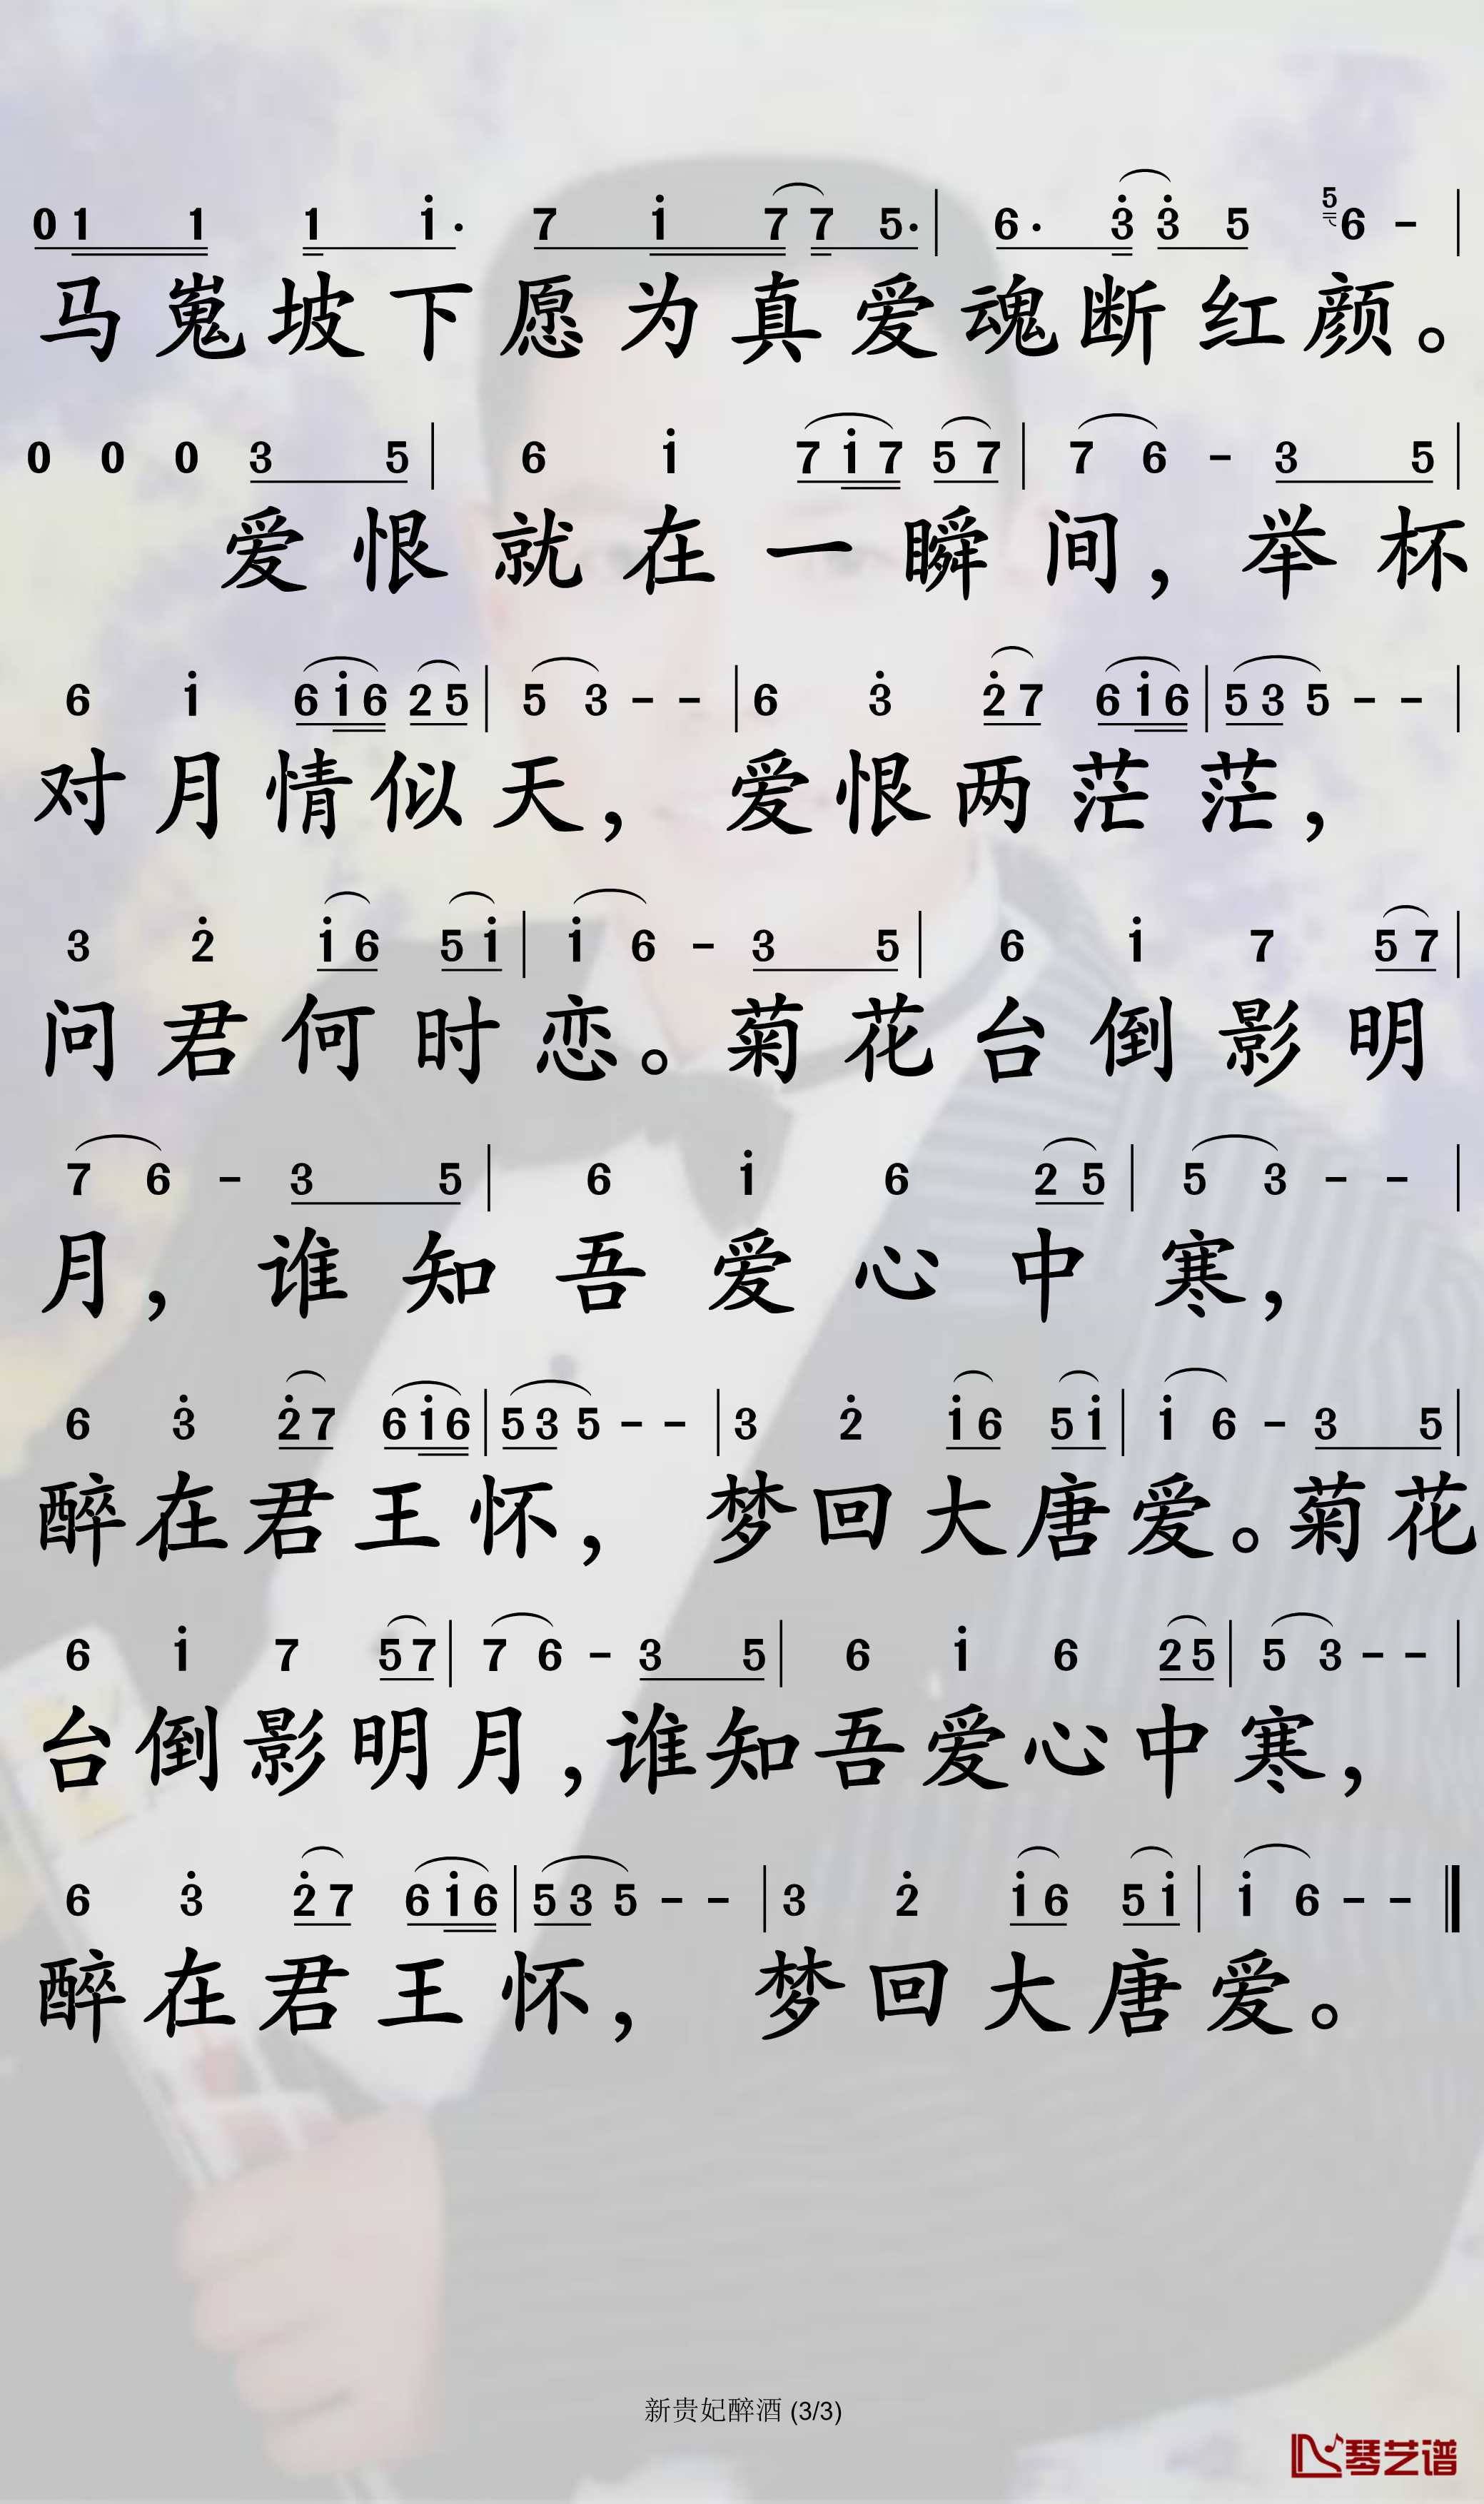 0 1 1 1 i· 7 i 7 7 5· | 6· 3 3 5 5 6 - |
马嵬坡下愿为真爱魂断红颜。
0 0 0 3 5 | 6 i 7 i 7 5 7 | 7 6 - 3 5 |
爱恨就在一瞬间，举杯
6 i 6 i 6 2 5 | 5 3 - - | 6 3 2 7 6 i 6 | 5 3 5 - - |
对月情似天，爱恨两茫茫，
3 2 i 6 5 i | i 6 - 3 5 | 6 i 7 5 7 |
问君何时恋。菊花台倒影明
7 6 - 3 5 | 6 i 6 2 5 | 5 3 - - |
月，谁知吾爱心中寒，
6 3 2 7 6 i 6 | 5 3 5 - - | 3 2 i 6 5 i | i 6 - 3 5 |
醉在君王怀，梦回大唐爱。菊花
6 i 7 5 7 | 7 6 - 3 5 | 6 i 6 2 5 | 5 3 - - |
台倒影明月，谁知吾爱心中寒，
6 3 2 7 6 i 6 | 5 3 5 - - | 3 2 i 6 5 i | i 6 - - ‖
醉在君王怀，梦回大唐爱。
新贵妃醉酒 (3/3)
琴艺谱